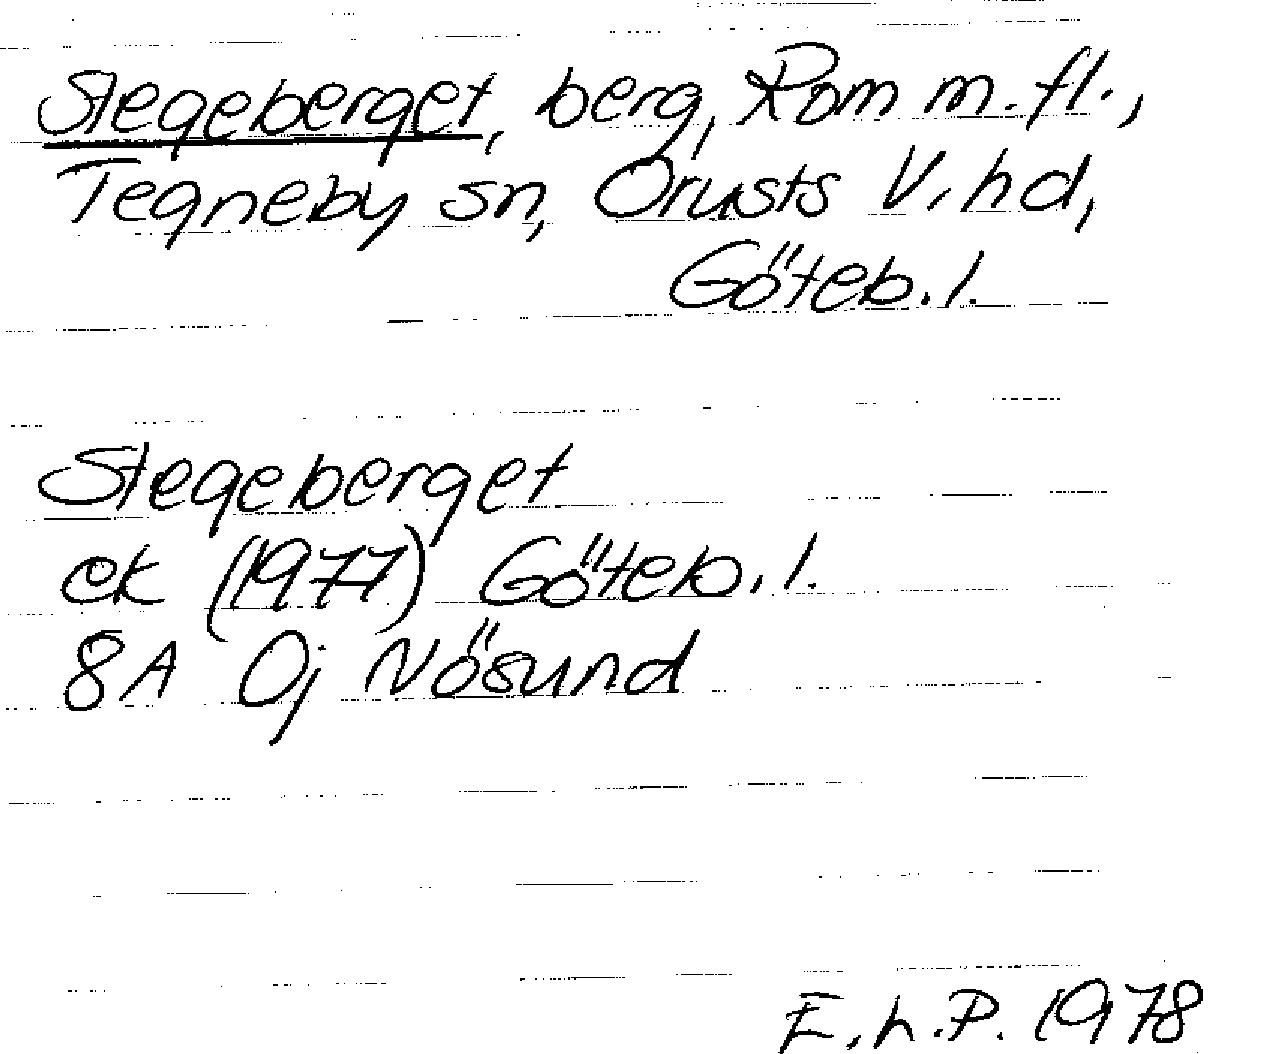 Stegeberget, berg, Röm m.fl.,
Tegneby sn, Orusts V. hd,
Göteb. l.
Stegeberget
ek (1977) Göteb. l.
8A 0j Nösund
E.h.P. 1978